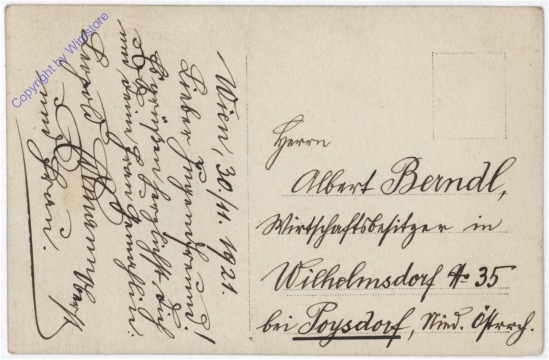 Wien, 30./11. 1921.
Lieber Jugendfreund!
Es grüßen herzlichst dich
und deine Frau Gemahlin
Josef
und Frau.
Herrn
Albert Berndl,
Wirtschaftsbesitzer in
Wilhelmsdorf № 35
bei Poysdorf, Nied. Österrch.
Copyright by Winstore